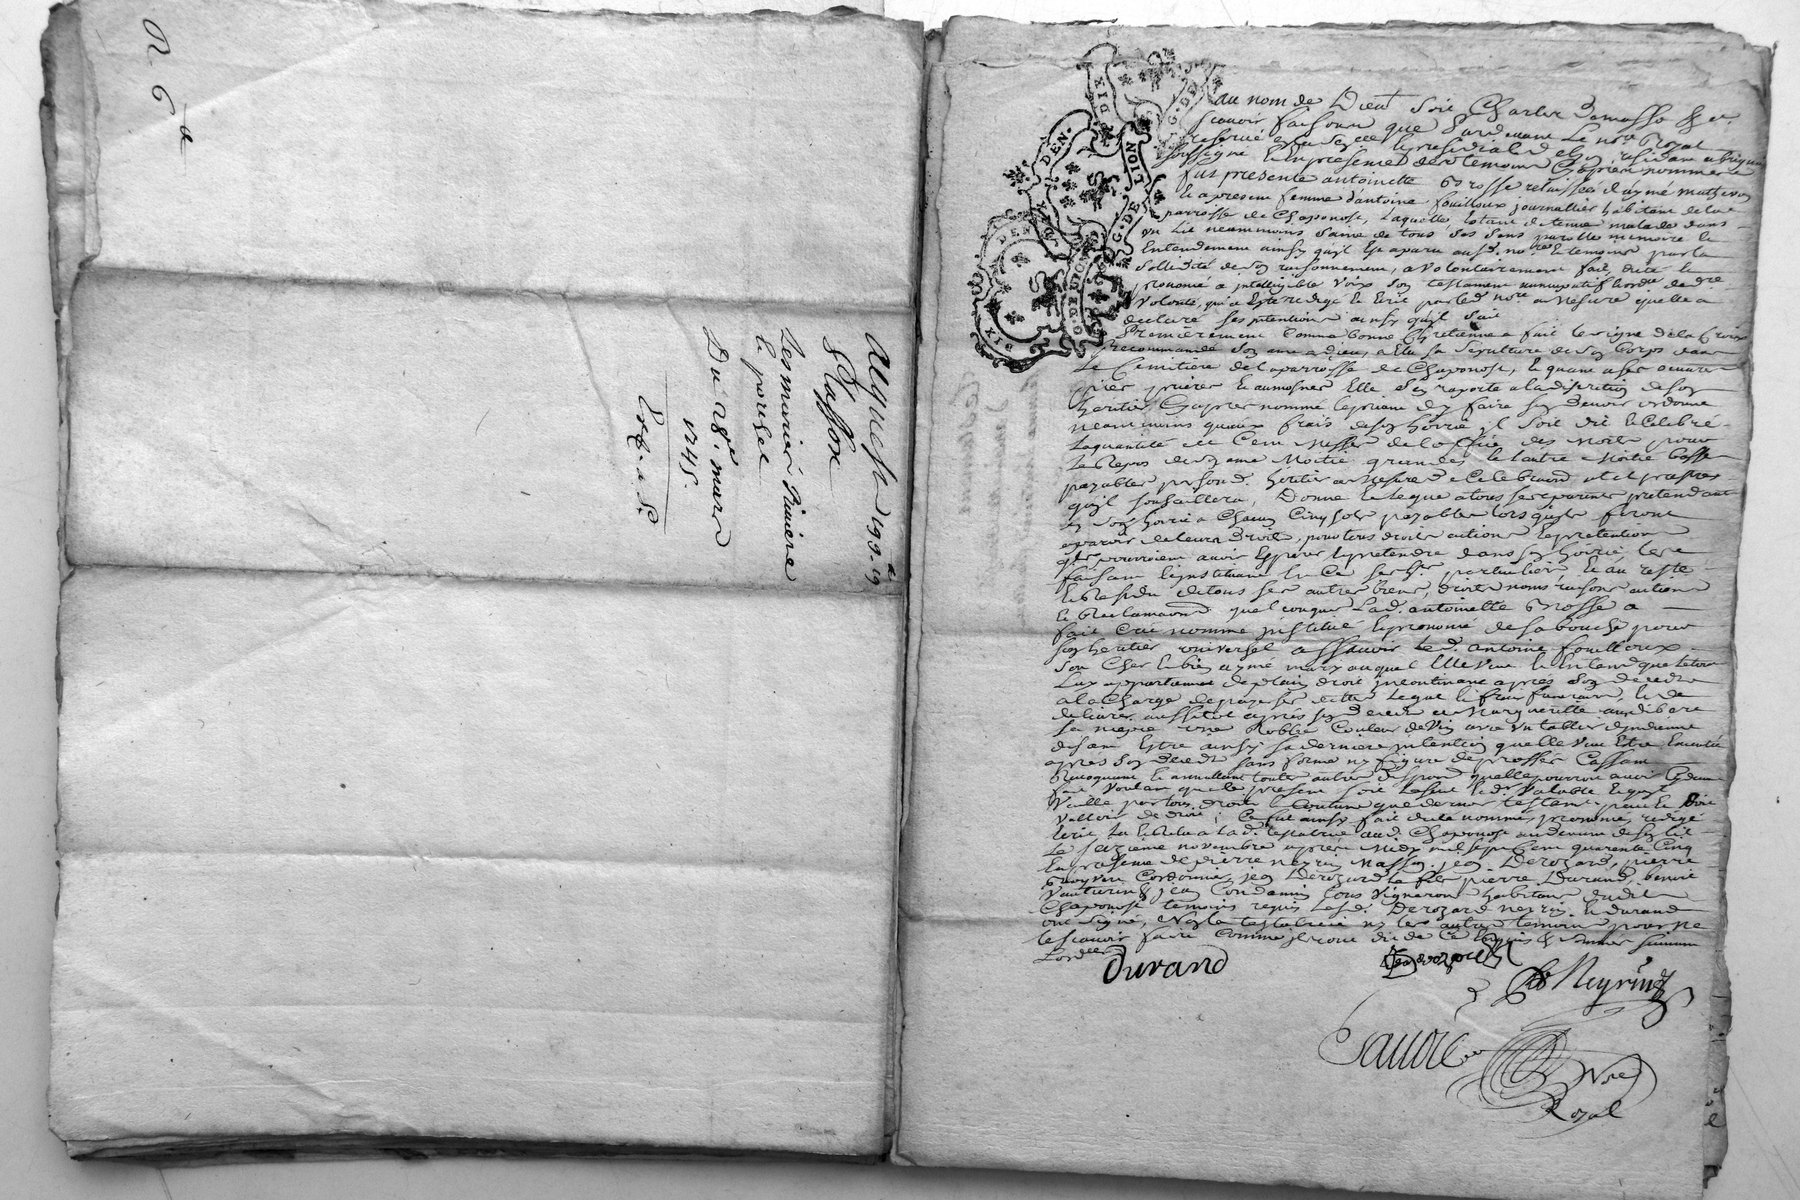 R 6 a
acquest 199tt 19
Slaffon
Les mariés Riviere
& porchet
Du 28e mars
1745.
DIX DEN. G. DE LION
DIX DEN. G. DE LION
DIX DEN. G. DE LION
au nom de Dieu soit
scavoir faisons que pardevant Le nore Royal
soussigné & En presence des temoins Cy après nommés
fut presente antoinette Grosse relaissée d'aymé mathevon
& a present femme d'antoine fouilloux journallier habitant de la
parroisse de Chaponost, Laquelle Estant detenue malade dans
un Lit neammoins saine de tous ses sens parolle memoire &
Entendement ainsy qu'il Est aparu aud. nore & temoins par la
sollidité de son raisonnement, a volontairement fait, dicté &
prononcé a intelligible voix son testament nuncupatif & ordre de dre
volonté, qui a Esté redigé En Ecrit par led nore a mesure quelle a
declaré ses intentions ainsy qu'il suit
Premierement Comme bonne Chretienne a fait le signe de la Croix
recommandé son ame a dieu, a Elu sa sepulture de son Corps dans
Le Cemitiere de la parroisse de Chaponost, & quant a ses oeuvres
pies prieres & aumosnes Elle s'en raporte a la discretion de son
heritier Cy apres nommé le priant d'en faire son Devoir ordonne
neammoins quaux frais de son hoirie il soit dit & Celebré
La quantité de Cent Messes de l'office des Morts pour
Le Repos de son ame Moitié grandes & l'autre Moitié basses
payables par sond. heritier a Mesure de Celebration
Donne & Legue a tous ses parents pretendants
en son hoirie a Chacun Cinq sols payables lorsqu'ils feront
aparoir de leurs Droits, pour tous droits actions & pretentions
qu'ils pourroient avoir Esperer & pretendre dans son hoirie, Les
faisant & instituant En Ce ses hers particuliers Et au reste
& Residu de tous ses autres biens, droits noms raisons actions
& Reclamaons quelconques Lad. antoinette Grosse a
fait Créé nommé institué & prononcé de sa bouche pour
son heritier universel a sscavoir Led. antoine fouilloux
son Cher & bien aymé mary auquel Elle veut & Entend que le tout
Luy appartienne de plain droit incontinant apres son decedz
a la Charge de payer ses dettes Legue & frais funeraires & de
delivrer aussitot apres son Decedz a Margueritte audibert
sa niepce une Robbe Couleur de Vin avec un tablier d'yndienne
disant Estre ainsy sa derniere intention quelle veut Estre Executée
apres son decedz sans forme ny figure de procès Cassant
Revoquant & annullant toutes autres dispons quelle pourroit avoir Cy devant
fait voulant que la presente soit La seule & dre valable & quil
Vaille par tous droits & Coutumes que dernier testamt peut & doit
Valloir de droit; Ce fut ainsy fait dicté nommé, prononcé, redigé
Ecrit Lu & Relu a Lad. testatrice aud. Chaponost au devant de son lit
Le saizieme novembre apres Midy mil sept Cent quarente Cinq
En presence de pierre neyrin Masson, jean Derozard, pierre
Cordonnier, jean Derozard Le fils pierre Durand, benoit
Vauturin & jean Condamin tous vignerons habitans dudit
Chaponost temoins requis Lesd. Derozard neyrin & durand
ont signé, Non la testatrice ny les autres temoins pour ne
le scavoir faire Comme ils ont dit de Ce Enquis & sommés suivant
L'ordce
durand
Neyrin
Savoie
Nore
Royal